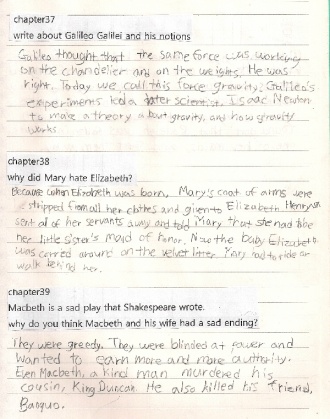 chapter37
write about Galileo Galilei and his notions
Galileo thought that the same force was working
on the chandelier and on the weights. He was
right. Today we call this force gravity. Galileo's
experiments led a later scientist, Isaac Newton
to make a theory about gravity, and how gravity
works
chapter38
why did Mary hate Elizabeth?
Because when Elizabeth was born, Mary's coat of arms were
stripped from all her clothes and given to Elizabeth. Henry
sent all of her servants away and told Mary that she had to be
her little sister's maid of honor. Now the baby Elizabeth
was carried around on the velvet litter Mary had to ride or
walk behind her.
chapter39
Macbeth is a sad play that Shakespeare wrote.
why do you think Macbeth and his wife had a sad ending?
They were greedy. They were blinded at power and
wanted to earn more and more authority.
Even Macbeth, a kind man murdered his
cousin, King Duncan. He also killed his friend,
Banquo.